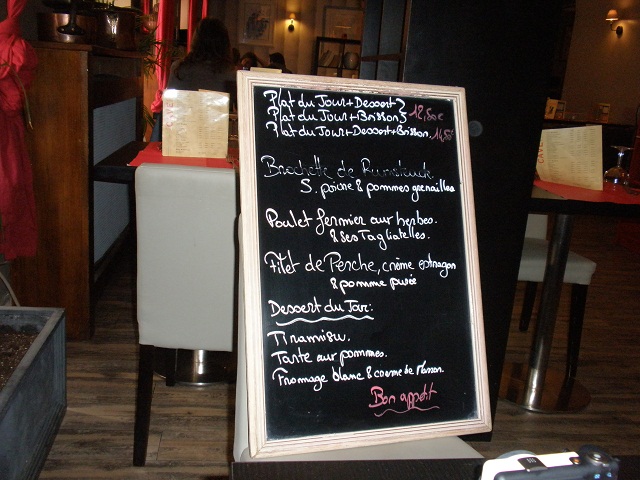 Plat du Jour + Dessert }
Plat du Jour + Boisson } 12,50€
Plat du Jour + Dessert + Boisson.
Brochette de Rumsteack.
S. poivre & pommes grenailles
Poulet fermier aux herbes.
& ses Tagliatelles.
Filet de Perche, crème estragon
& pomme purée
Dessert du Jour:
Tiramisu.
Tarte aux pommes.
Fromage blanc & creme de Marron.
Bon appétit